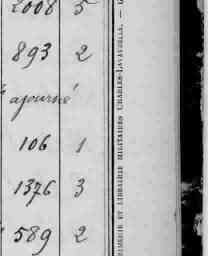 2008 5
893 2
ajourné
106 1
1376 3
589 2
IMPRIMERIE ET LIBRAIRIE MILITAIRES CHARLES-LAVAUZELLE. —